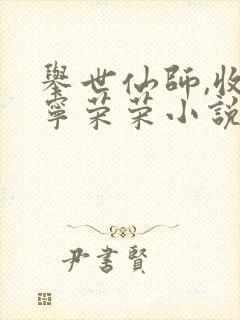 舉世仙師,收
寧荣荣小説
尹書賢